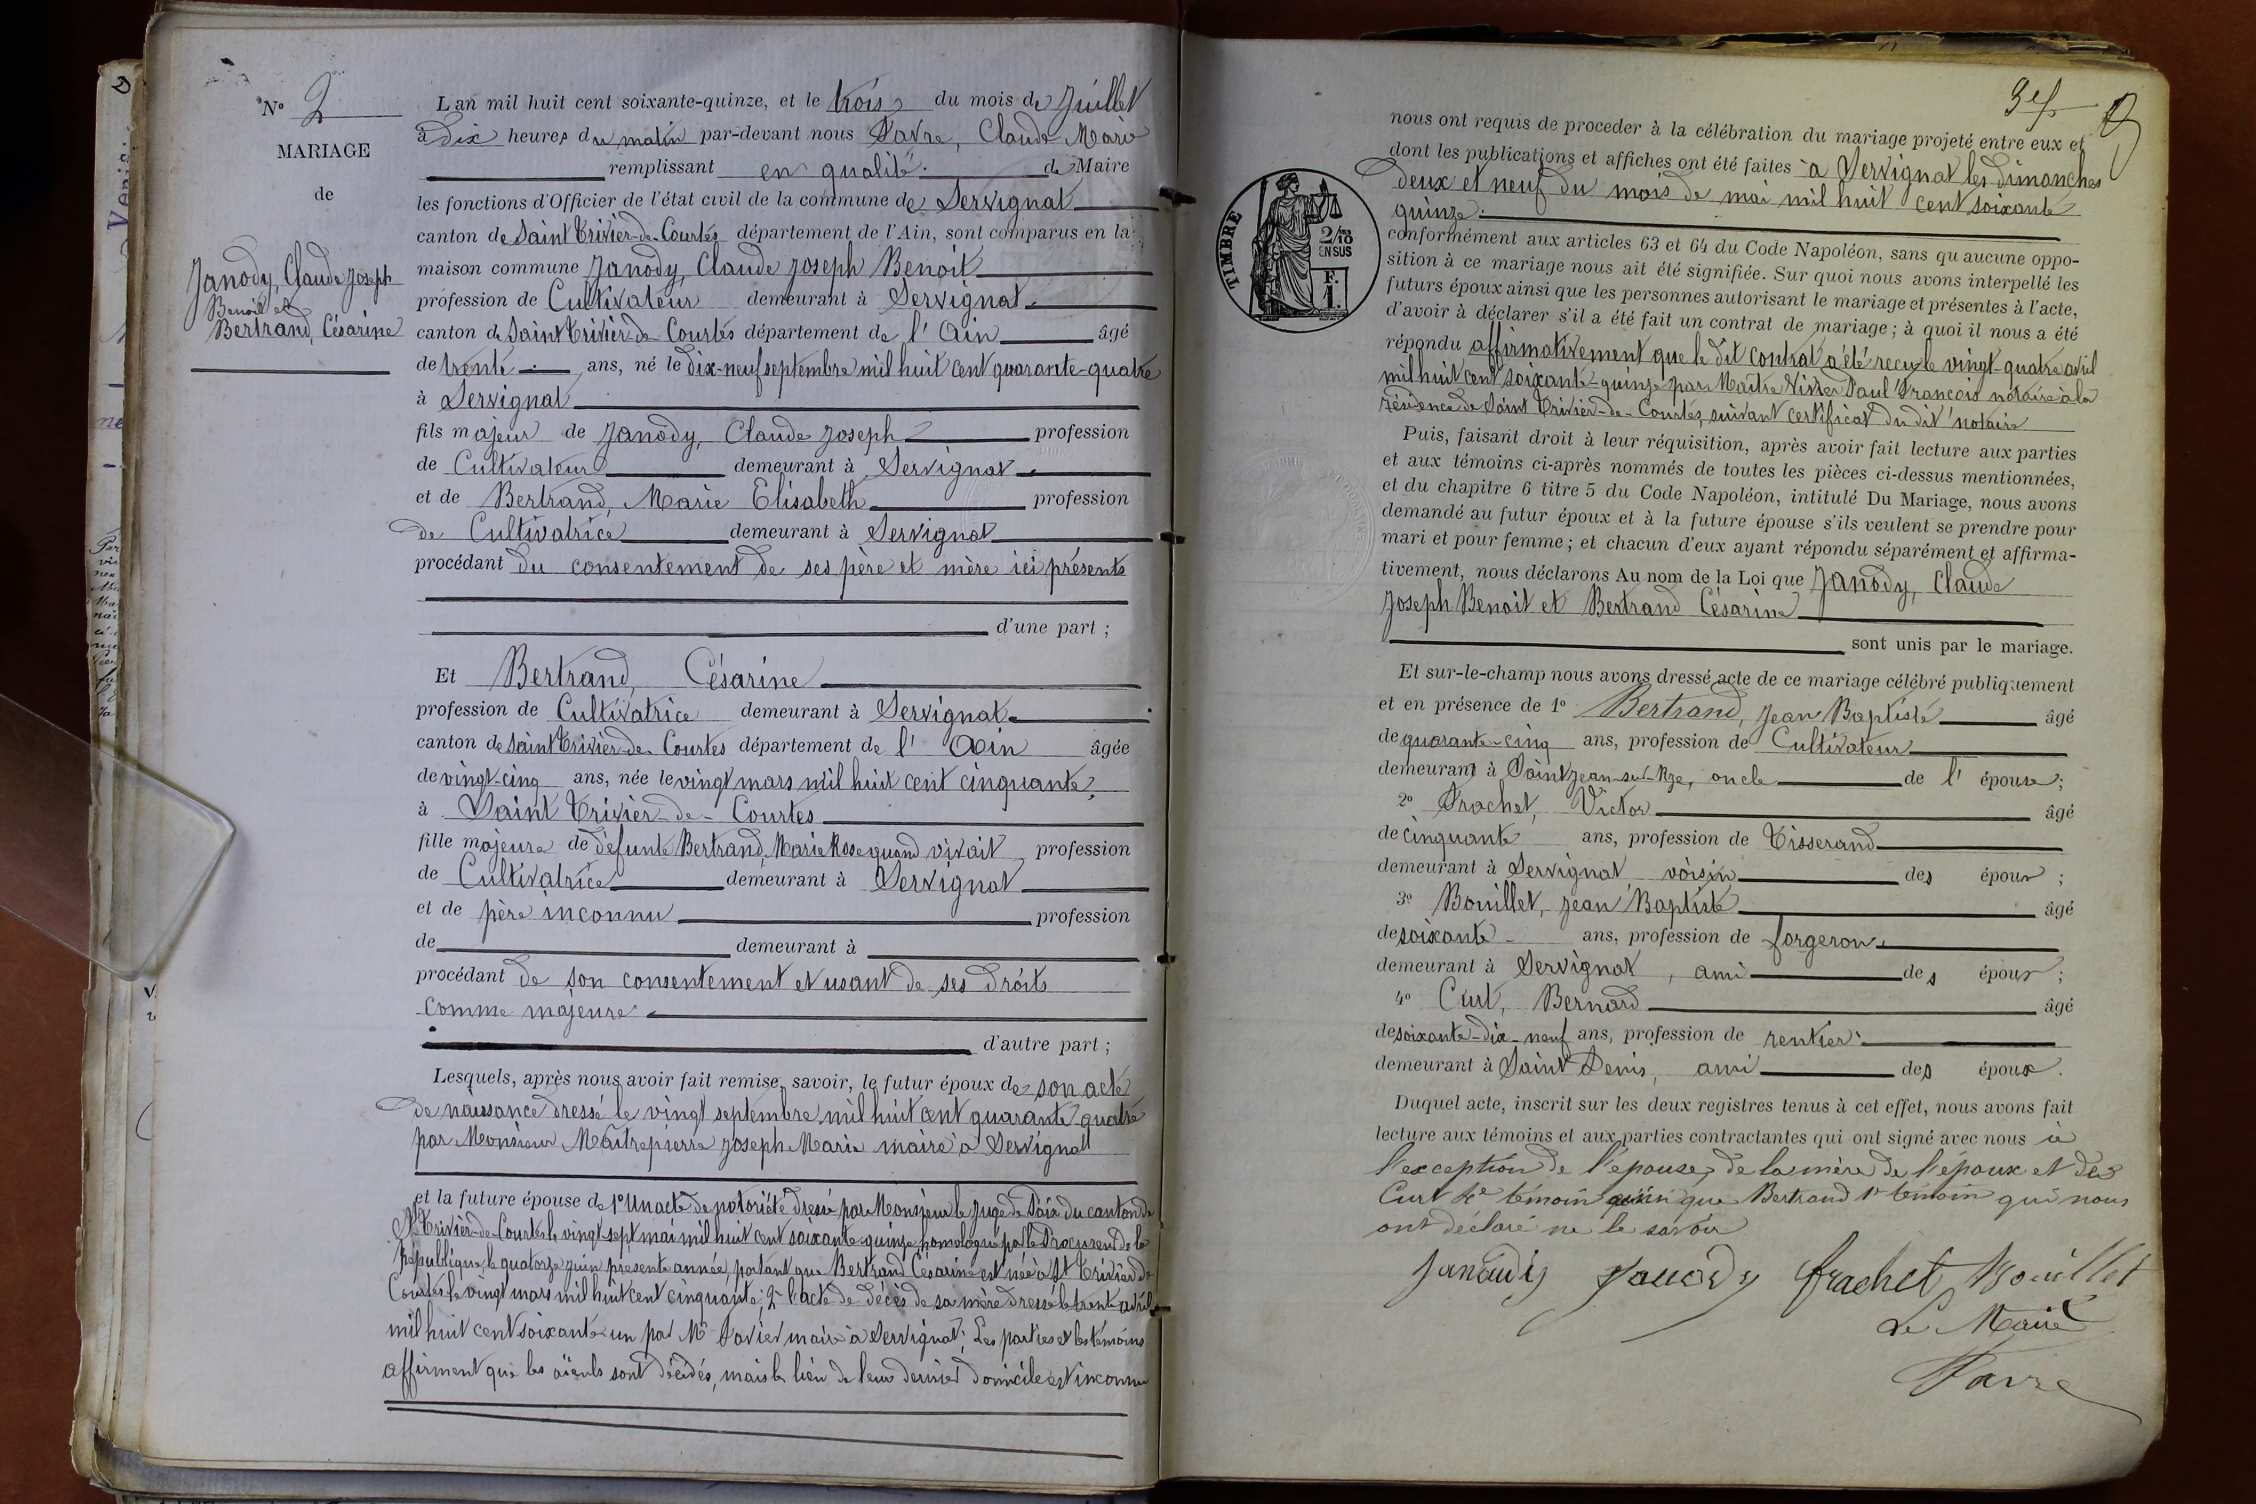 N° 2
MARIAGE
de
Janody, Claude Joseph
Benoit et
Bertrand, Césarine
L'an mil huit cent soixante-quinze, et le trois du mois de Juillet
à dix heures du matin par-devant nous Favre, Claude Marie
remplissant en qualité de Maire
les fonctions d'Officier de l'état civil de la commune de Servignat
canton de Saint Trivier-de-Courtes département de l'Ain, sont comparus en la
maison commune Janody, Claude Joseph Benoit
profession de Cultivateur demeurant à Servignat
canton de Saint Trivier-de-Courtes département de l'Ain âgé
de trente ans, né le dix-neuf septembre mil huit cent quarante-quatre
à Servignat
fils majeur de Janody, Claude Joseph profession
de Cultivateur demeurant à Servignat
et de Bertrand, Marie Elisabeth profession
de Cultivatrice demeurant à Servignat
procédant du consentement de ses père et mère ici présents
d'une part ;
Et Bertrand, Césarine
profession de Cultivatrice demeurant à Servignat
canton de Saint Trivier-de-Courtes département de l'Ain âgée
de vingt-cinq ans, née le vingt mars mil huit cent cinquante,
à Saint Trivier-de-Courtes
fille majeure de défunte Bertrand, Marie Rose quand vivait profession
de Cultivatrice demeurant à Servignat
et de père inconnu profession
de demeurant à
procédant de son consentement et usant de ses droits
comme majeure
d'autre part ;
Lesquels, après nous avoir fait remise, savoir, le futur époux de son acte
de naissance dressé le vingt septembre mil huit cent quarante-quatre
par Monsieur Maitrepierre Joseph Marie maire à Servignat
et la future épouse de 1° Un acte de notoriété dressé par Monsieur le Juge de Paix du canton de
St Trivier-de-Courtes le vingt-sept mai mil huit cent soixante-quinze homologué par le Procureur de la
République, le quatorze juin présente année, portant que Bertrand Césarine est née à St Trivier de
Courtes le vingt mars mil huit cent cinquante; 2° l'acte de décès de sa mère dressé le trente avril
mil huit cent soixante-un par Mr maire à Servignat; Les parties et les témoins
affirment que les aïeuls sont décédés, mais le lieu de leur dernier domicile est inconnu
nous ont requis de proceder à la célébration du mariage projeté entre eux et
dont les publications et affiches ont été faites à Servignat les dimanches
deux et neuf du mois de mai mil huit cent soixante
quinze.
TIMBRE
2/10
EN SUS
F.
1.
conformément aux articles 63 et 64 du Code Napoléon, sans qu'aucune oppo-
sition à ce mariage nous ait été signifiée. Sur quoi nous avons interpellé les
futurs époux ainsi que les personnes autorisant le mariage et présentes à l'acte,
d'avoir à déclarer s'il a été fait un contrat de mariage ; à quoi il nous a été
répondu affirmativement que le dit contrat a été reçu le vingt-quatre avril
mil huit cent soixante-quinze par Maître Vivier Paul François notaire à la
résidence de Saint Trivier-de-Courtes, suivant certificat du dit notaire
Puis, faisant droit à leur réquisition, après avoir fait lecture aux parties
et aux témoins ci-après nommés de toutes les pièces ci-dessus mentionnées,
et du chapitre 6 titre 5 du Code Napoléon, intitulé Du Mariage, nous avons
demandé au futur époux et à la future épouse s'ils veulent se prendre pour
mari et pour femme ; et chacun d'eux ayant répondu séparément et affirma-
tivement, nous déclarons Au nom de la Loi que Janody, Claude
Joseph Benoit et Bertrand Césarine
sont unis par le mariage.
Et sur-le-champ nous avons dressé acte de ce mariage célébré publiquement
et en présence de 1° Bertrand, Jean Baptiste âgé
de quarante-cinq ans, profession de Cultivateur
demeurant à Saint Jean-sur-Rze, oncle de l'épouse ;
2° Frachet, Victor âgé
de cinquante ans, profession de Tisserand
demeurant à Servignat voisin des époux ;
3° Bouillet, Jean Baptiste âgé
de soixante ans, profession de forgeron
demeurant à Servignat, ami des époux ;
4° Curt, Bernard âgé
de soixante-dix-neuf ans, profession de rentier
demeurant à Saint Denis, ami des époux.
Duquel acte, inscrit sur les deux registres tenus à cet effet, nous avons fait
lecture aux témoins et aux parties contractantes qui ont signé avec nous à
l'exception de l'épouse, de la mère de l'époux et de
Curt 4e témoin ainsi que Bertrand 1r témoin qui nous
ont déclaré ne le savoir
Janaudy Janody frachet Bouillet
Le Maire
Favre